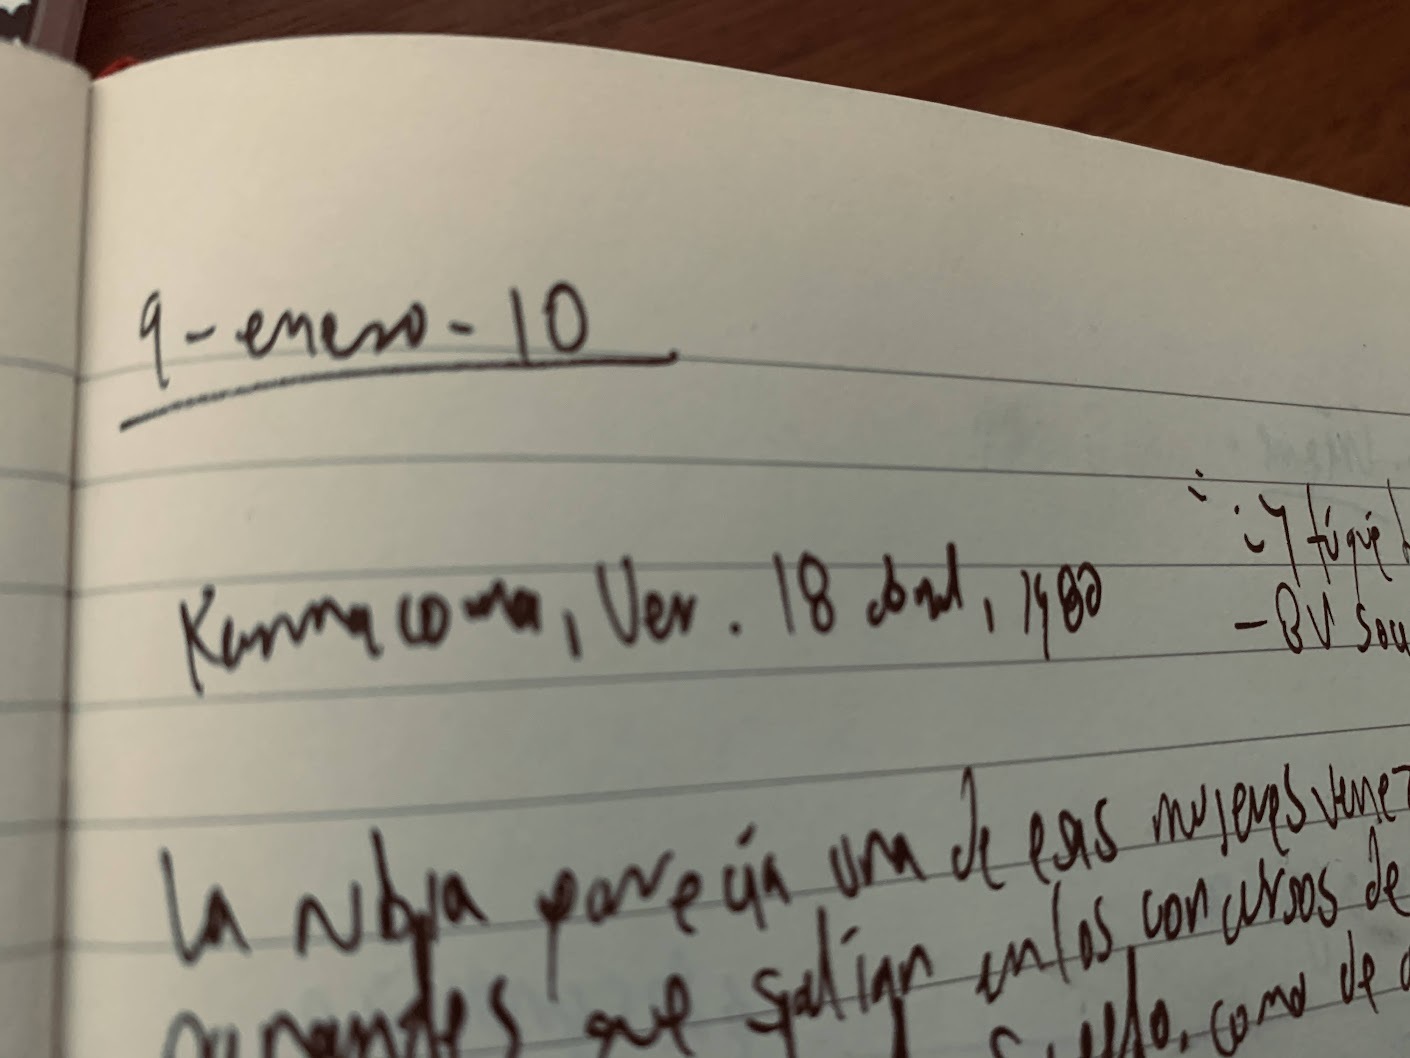 9-enero-10
, Ver. 18 abril, 1980
¿Y tú qué
- BV
La rubia parecía una de esas mujeres
que salían en los concursos de
como de